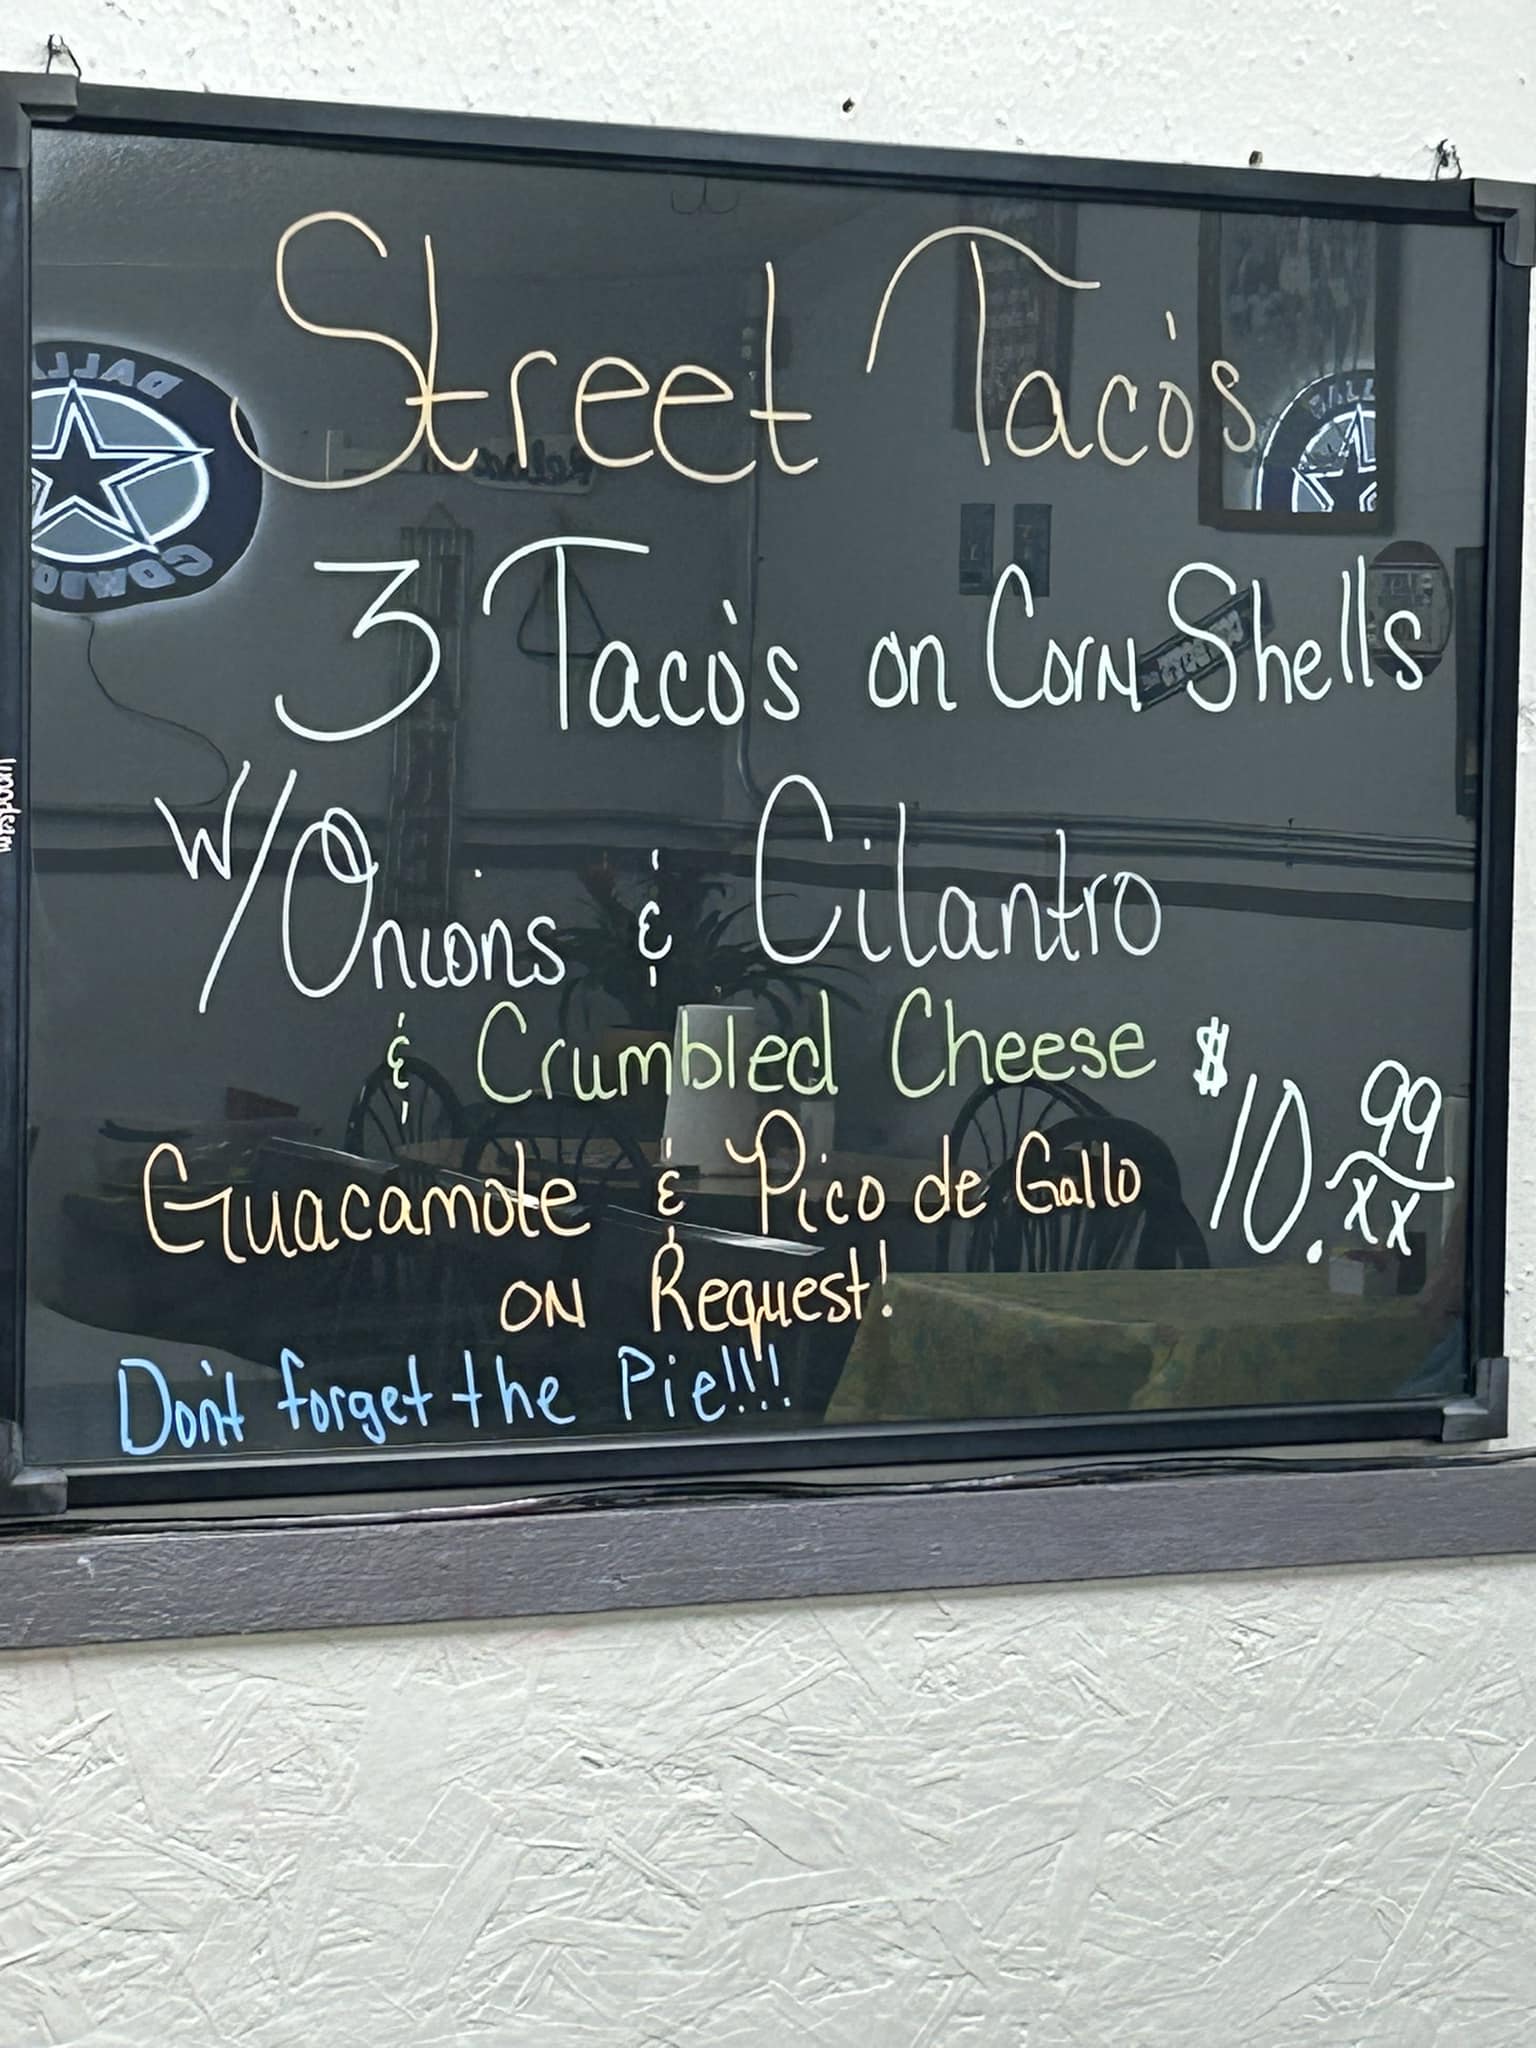 Street Taco's
3 Taco's on Corn Shells
w/Onions & Cilantro
& Crumbled Cheese $10.99/xx
Guacamole & Pico de Gallo
on Request!
Don't forget the Pie!!!